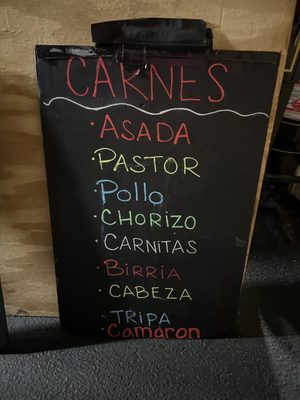 CARNES
· ASADA
· PASTOR
· Pollo
· CHORIZO
· CARNITAS
· BIRRIA
· CABEZA
· TRIPA
· Camaron